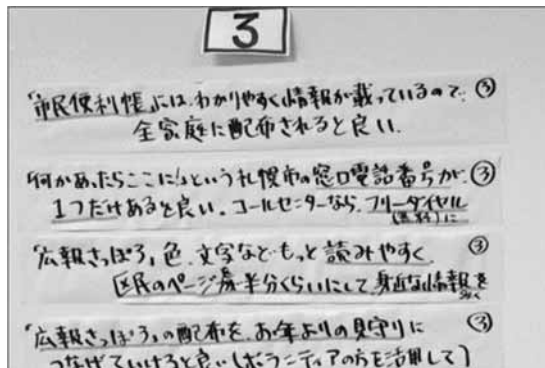 3
「市民便利帳」には、わかりやすく情報が載っているので、③
全家庭に配布されると良い。
「何かあったらここに!」という札幌市の窓口電話番号が、③
1つだけあると良い。コールセンターなら、フリーダイヤル
(無料)に
「広報さっぽろ」色、文字など、もっと読みやすく ③
区民のページ 半分くらいにして、身近な情報を
「広報さっぽろ」の配布を、お年よりの見守りに ③
つなげていけると良い(ボランティアの方を活用して)